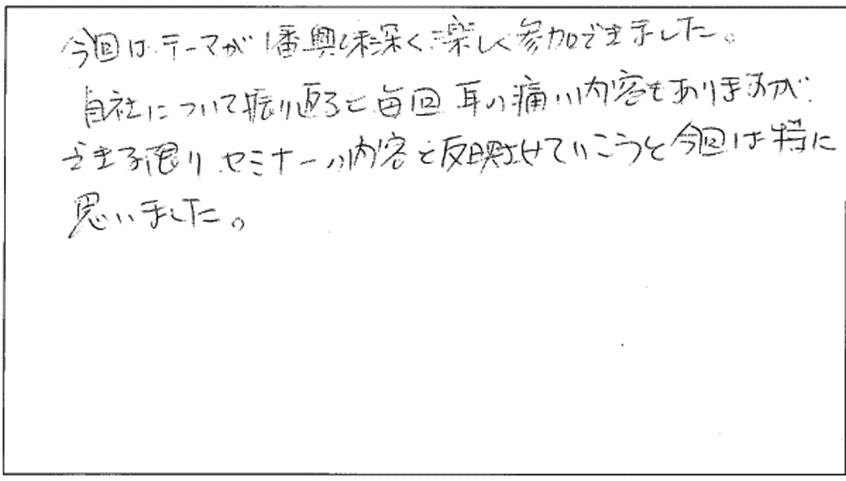 今回はテーマが1番興味深く楽しく参加できました。
自社について振り返ると毎回耳の痛い内容もありますが
できる限りセミナーの内容を反映させていこうと今回は特に
思いました。